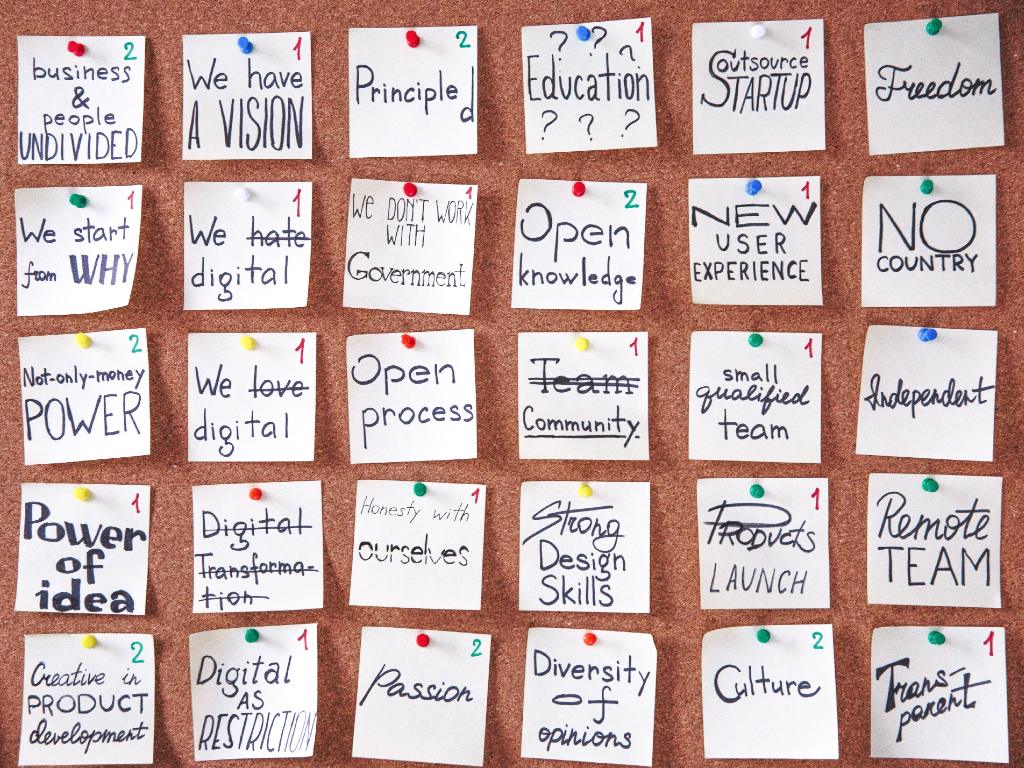 2
business
&
people
UNDIVIDED
1
We have
A VISION
2
Principled
1
? ? ?
Education
? ? ?
1
Outsource
STARTUP
Freedom
1
We start
from WHY
1
We hate
digital
1
WE DON'T WORK
WITH
Government
2
Open
knowledge
1
NEW
USER
EXPERIENCE
NO
COUNTRY
2
Not-only-money
POWER
1
We love
digital
Open
process
1
Team
Community
1
small
qualified
team
Independent
1
Power
of
idea
Digital
Transforma-
tion
1
Honesty with
ourselves
Strong
Design
Skills
1
PRODUCTS
LAUNCH
REMOTE
TEAM
2
Creative in
PRODUCT
development
1
Digital
AS
RESTRICTION
2
Passion
Diversity
of
opinions
2
Culture
1
Trans-
parent